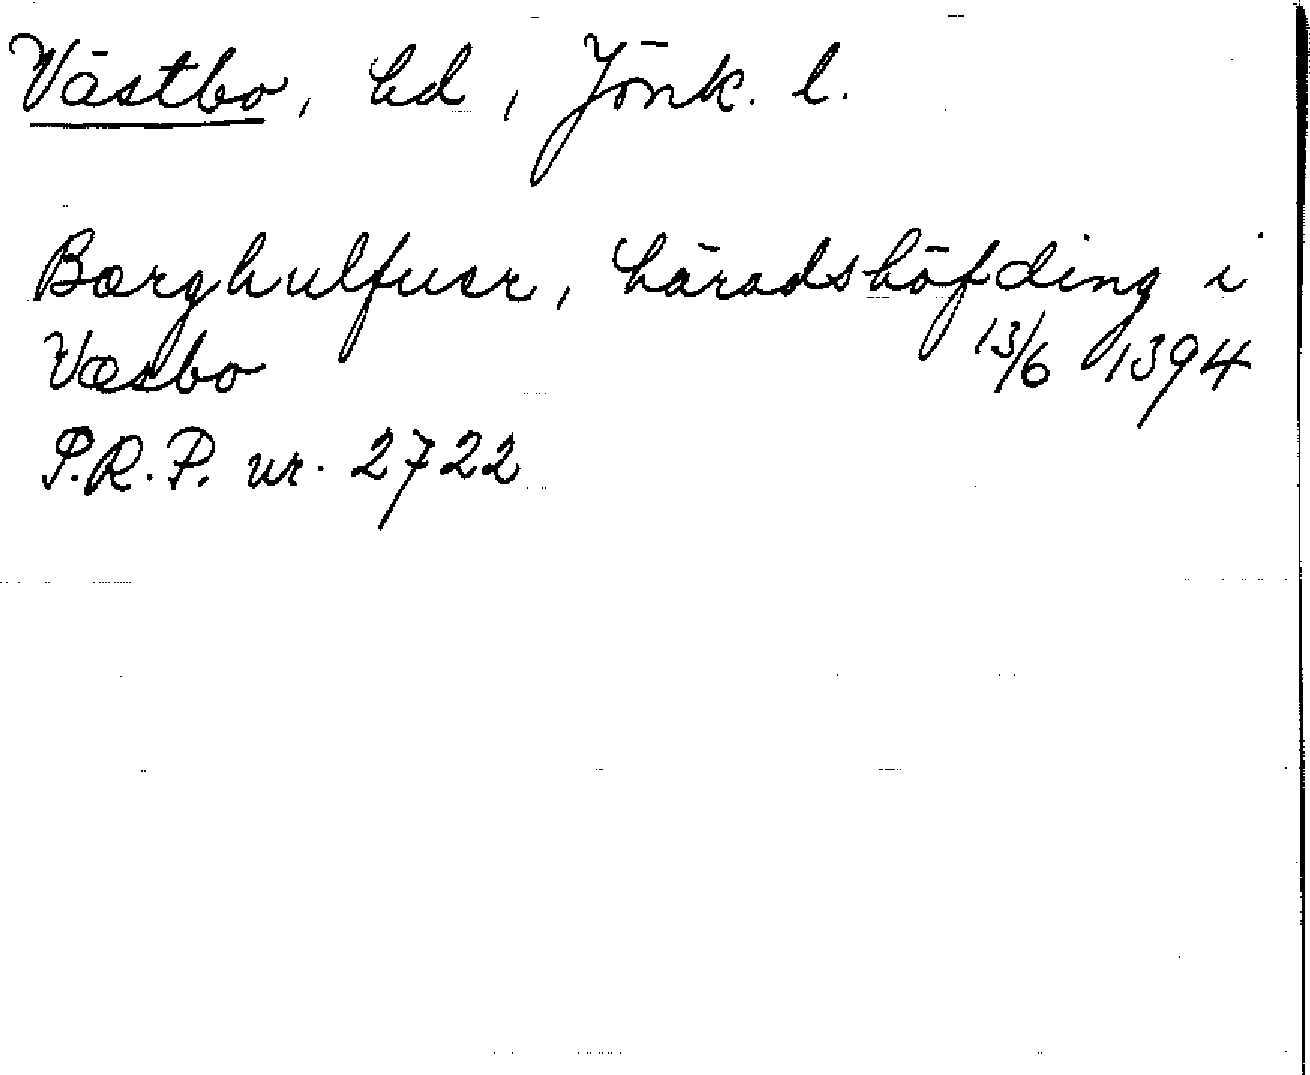 Västbo, hd, Jönk. l.
Bærghulfuer, häradshöfding i
Væsbo 13/6 1394
P.R.P. nr. 2722